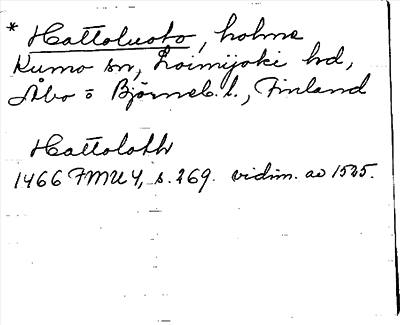 * Hattoluoto, holme
Kumo sn, Loimijoki hd,
Åbo o Björneb. l., Finland
Hattoloth
1466 FMU 4, s. 269. vidim. av 1525.